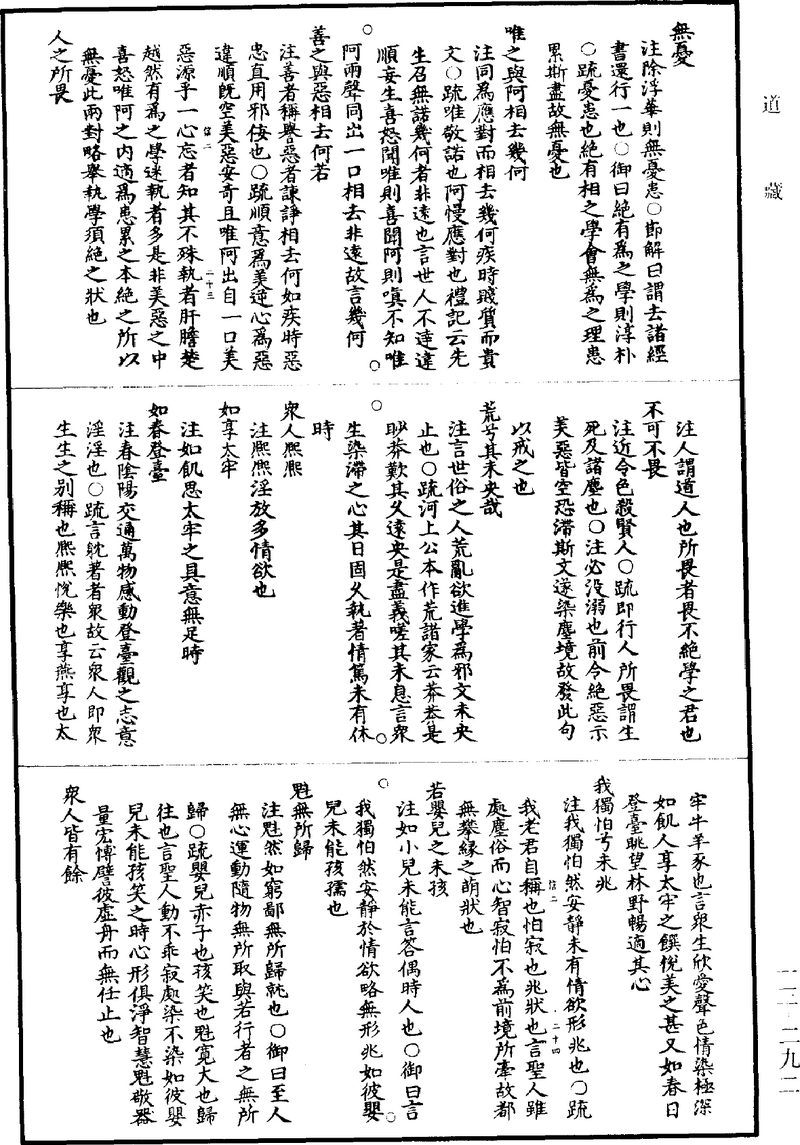 道藏
無憂
注除浮華則無憂患○節解曰謂去諸經
書還行一也○御曰絕有為之學則淳朴
○疏憂患也絕有相之學會無為之理患
累斯盡故無憂也
唯之與阿相去幾何
注同為應對而相去幾何疾時賤質而貴
文○疏唯敬諾也阿慢應對也禮記云先
生召無諾幾何者非遠也言世人不達違
順妄生喜怒聞唯則喜聞阿則嗔不知唯
阿兩聲同出一口相去非遠故言幾何
善之與惡相去何若
注善者稱譽惡者諫諍相去何如疾時惡
忠直用邪佞也○疏順意為美逆心為惡
違順既空美惡安寄且唯阿出自一口美
信二
二十三
惡源乎一心忘者知其不殊執者肝膽楚
越然有為之學迷執者多是非美惡之中
喜怒唯阿之內適為患累之本絕之所以
無憂此兩對略舉執學須絕之狀也
人之所畏
注人謂道人也所畏者畏不絕學之君也
不可不畏
注近令色殺賢人○疏即行人所畏謂生
死及諸塵也○注必沒溺也前令絕惡示
美惡皆空恐滯斯文遂染塵境故發此句
以戒之也
荒兮其未央哉
注言世俗之人荒亂欲進學為邪文未央
止也○疏河上公本作荒諸家云莽莽是
眇莽歎其久遠央是盡義嗟其未息言衆
生染滯之心其日固久執著情篤未有休
時
衆人熙熙
注熙熙淫放多情欲也
如享太牢
注如飢思太牢之具意無足時
如春登臺
注春陰陽交通萬物感動登臺觀之志意
淫淫也○疏言躭著者衆故云衆人即衆
生生之別稱也熙熙悅樂也享燕享也太
牢牛羊豕也言衆生欣愛聲色情染極深
如飢人享太牢之饌悅美之甚又如春日
登臺眺望林野暢適其心
我獨怕兮未兆
注我獨怕然安靜未有情欲形兆也○疏
我老君自稱也怕寂也兆狀也言聖人雖
信二
二十四
處塵俗而心智寂怕不為前境所牽故都
無攀緣之萌狀也
若嬰兒之未孩
注如小兒未能言答偶時人也○御曰言
我獨怕然安靜於情欲略無形兆如彼嬰
兒未能孩孺也
魁無所歸
注魁然如窮鄙無所歸就也○御曰至人
無心運動隨物無所取與若行者之無所
歸○疏嬰兒赤子也孩笑也魁寬大也歸
往也言聖人動不乖寂處染不染如彼嬰
兒未能孩笑之時心形俱淨智慧魁敬器
量宏博譬彼虛舟而無任止也
衆人皆有餘